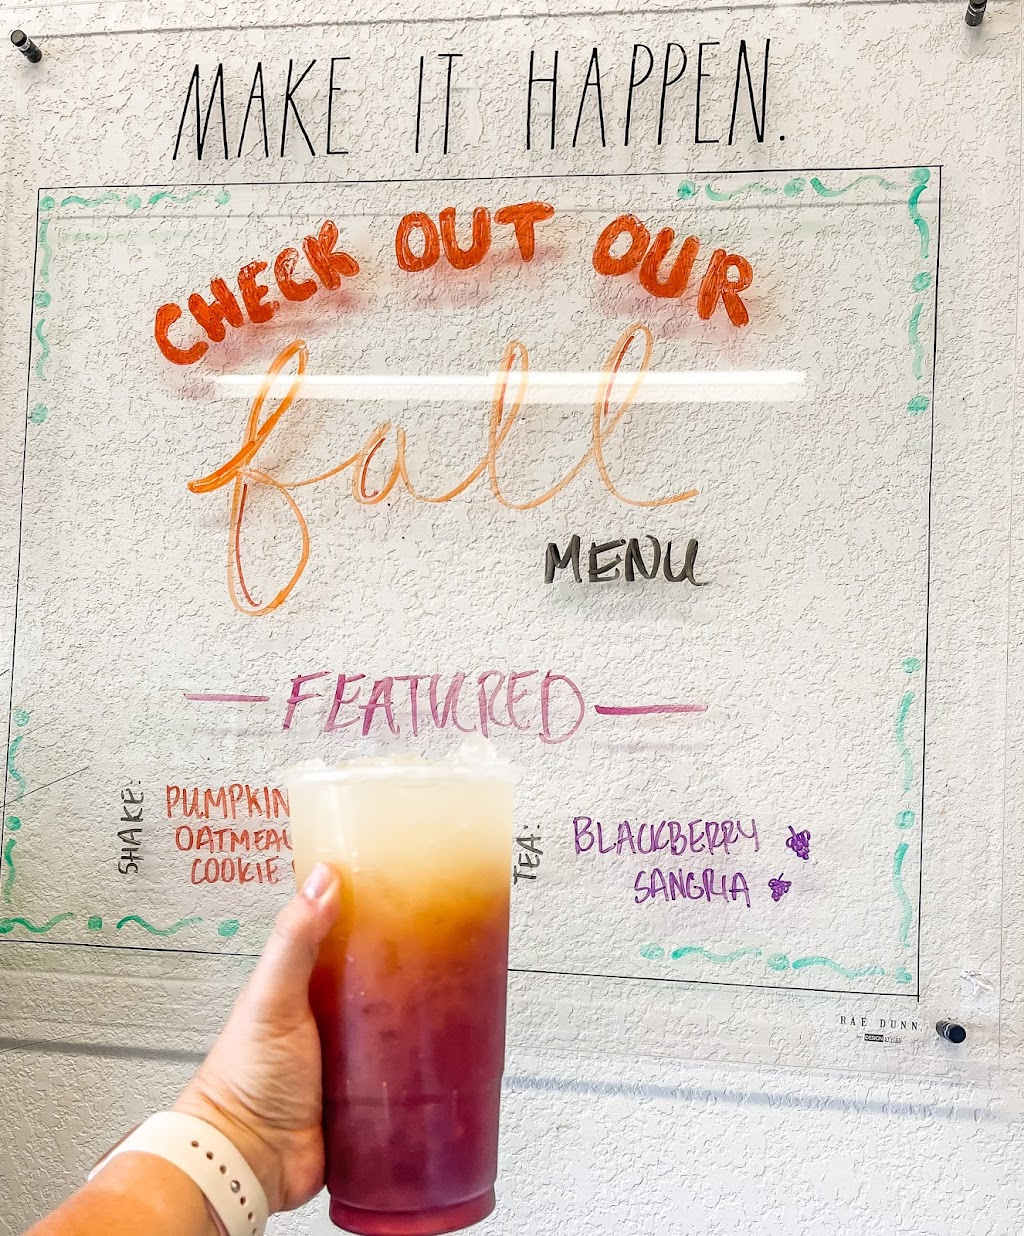 MAKE IT HAPPEN.
CHECK OUT OUR
fall
MENU
— FEATURED —
SHAKE:
PUMPKIN
OATMEAL
COOKIE
TEA:
BLACKBERRY
SANGRIA
RAE DUNN.